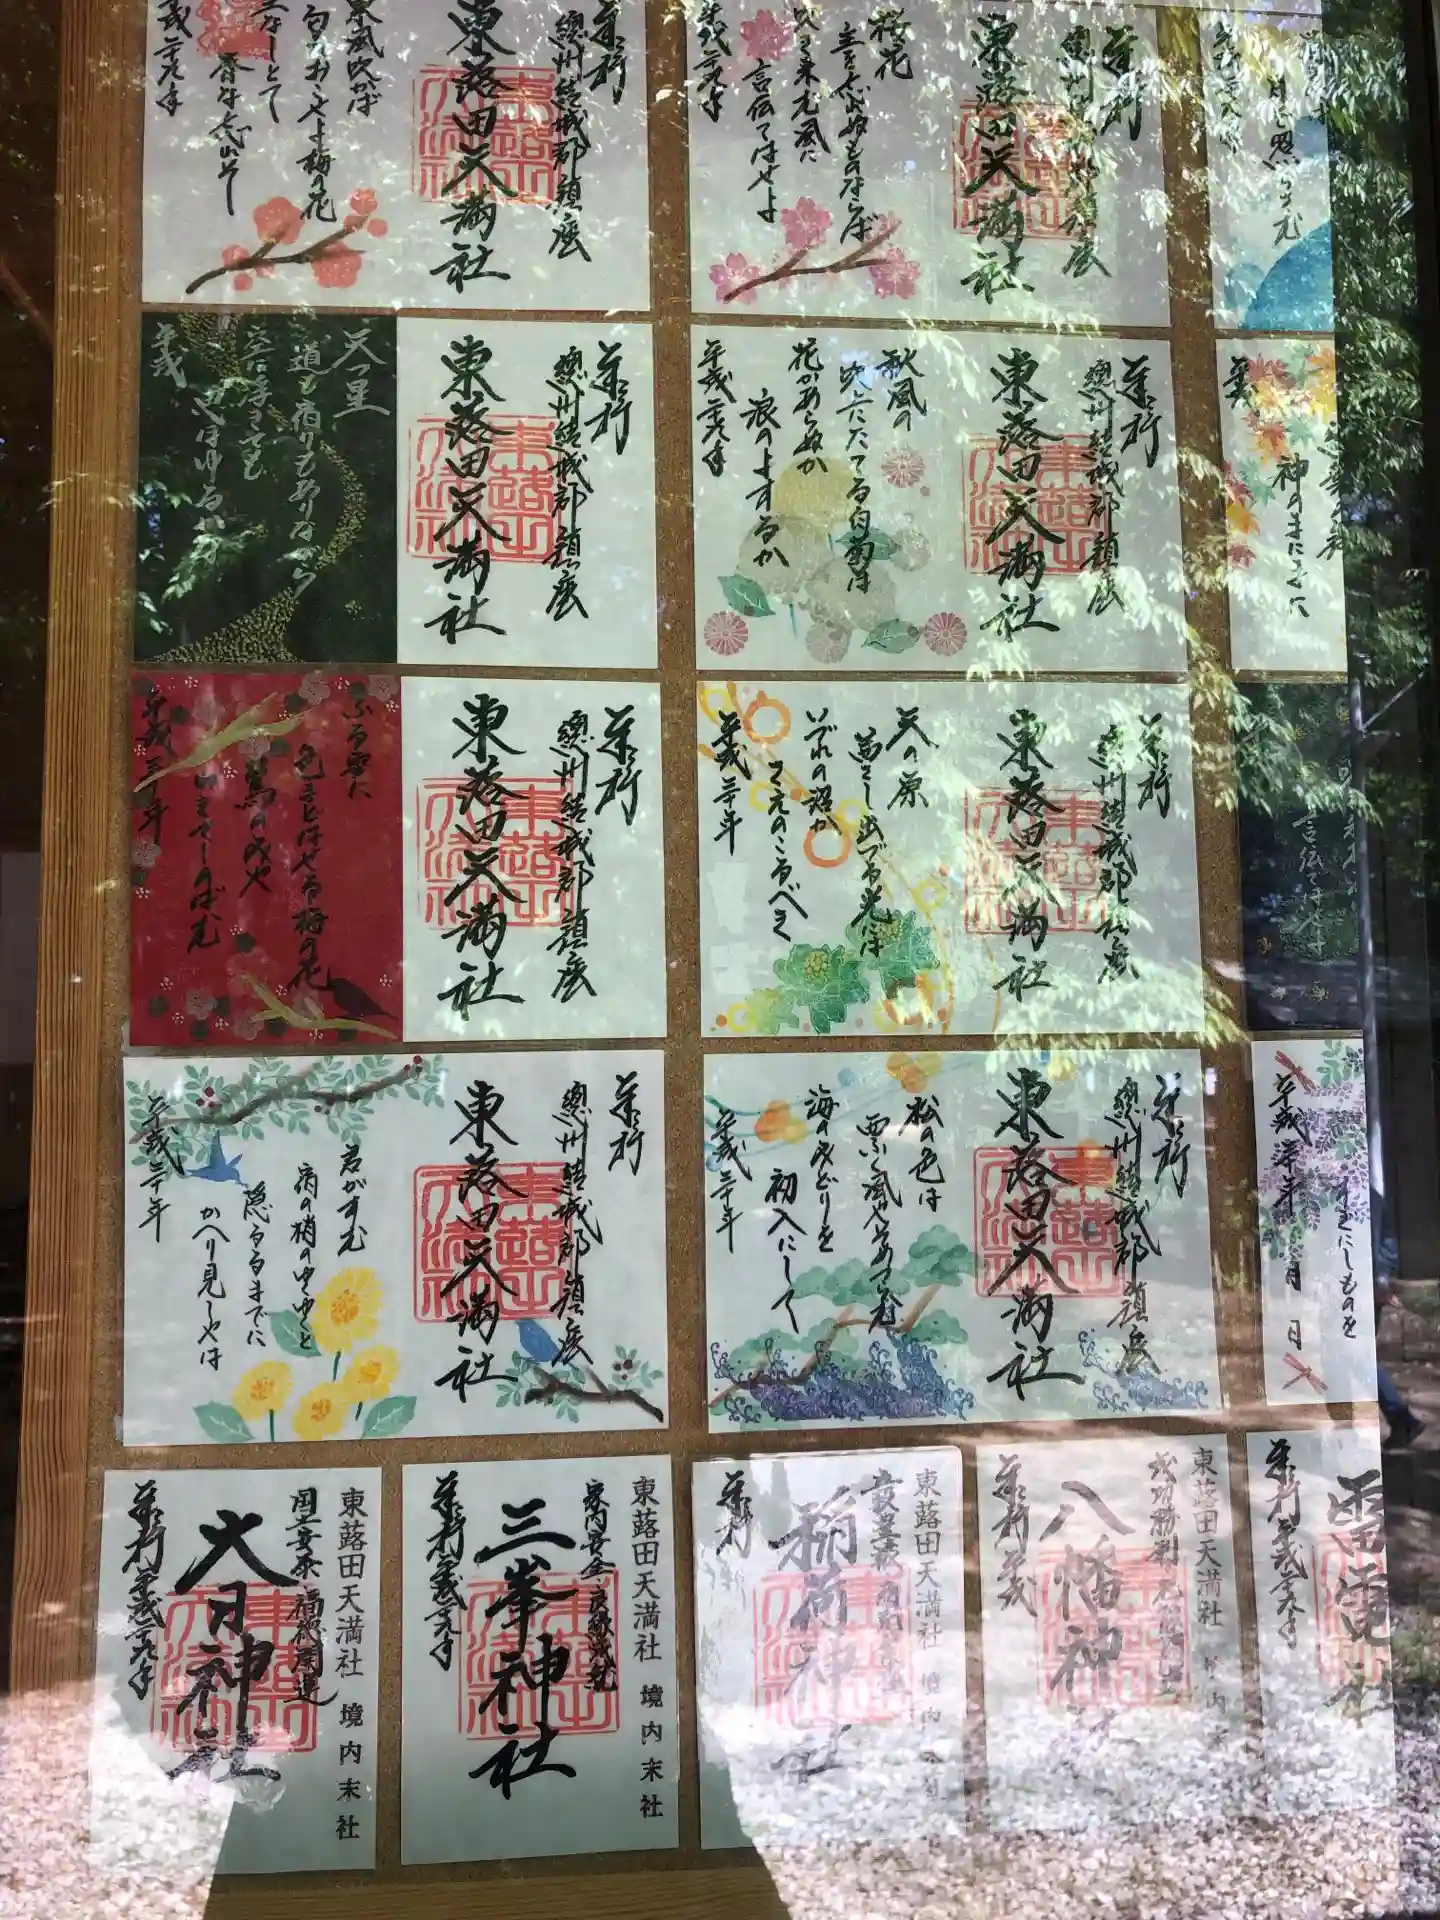 業拝
總州結城郡鎮座
東蕗田天満社
東風吹かば
匂ひおこせよ梅の花
主なしとて
春な忘れそ
平成二十九年
業拝
總州結城郡鎮座
東蕗田天満社
桜花
主を忘れぬものならば
吹き来む風に
言伝てはせよ
平成二十九年
月ぞ照らさむ
業拝
總州結城郡鎮座
東蕗田天満社
天つ星
道も宿りもありながら
空に浮きても
おもほゆるかな
平成
業拝
總州結城郡鎮座
東蕗田天満社
秋風の
吹上にたてる白菊は
花かあらぬか
浪のよするか
平成二十九年
神のまにまに
業拝
總州結城郡鎮座
東蕗田天満社
ふる雪に
色まどはせる梅の花
鶯のみや
わきてしのばむ
平成三十年
業拝
總州結城郡鎮座
東蕗田天満社
天の原
茜さし出づる光には
いづれの沼か
さえのこるべき
平成三十年
言伝てはせよ
業拝
總州結城郡鎮座
東蕗田天満社
君がすむ
宿の梢のゆくゆくと
隠るるまでに
かへり見しやは
平成三十年
業拝
總州結城郡鎮座
東蕗田天満社
松の色は
西ふく風やそめつらむ
海のみどりを
初入にして
平成三十年
にしものを
平成 年 月 日
東蕗田天満社 境内末社
国土安泰 福徳開運
大日神社
業拝 平成二十九年
東蕗田天満社 境内末社
家内安全 良縁成就
三峯神社
業拝 平成二十九年
東蕗田天満社 境内
五穀豊穣
稲荷神社
業拝
東蕗田天満社 境内
成功勝利
八幡神社
業拝 平成
雷電社
業拝 平成二十九年